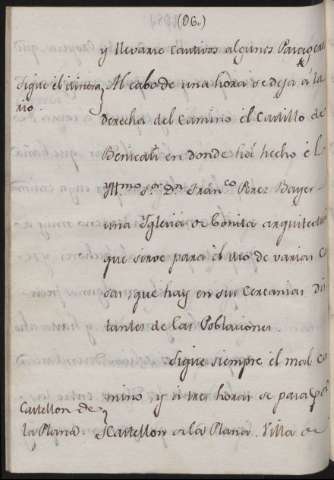 (96.)
y llevarse cautivos algunos
Sigue el itinera
rio.
Al cabo de una hora se deja a la
derecha del Camino el Castillo de
Benicasi en donde hai hecho el
Yll.mo S.or D.n Fran.co Perez Bayer
una Yglesia de bonita arquitectu
que sirve para el uso de varias C
sas, que hay en sus cercanias di
tantes de las Poblaciones.
Sigue siempre el mal c
mino, y a tres horas se para
Castellon de
la Plana.
Castellon de la Plana. Villa de